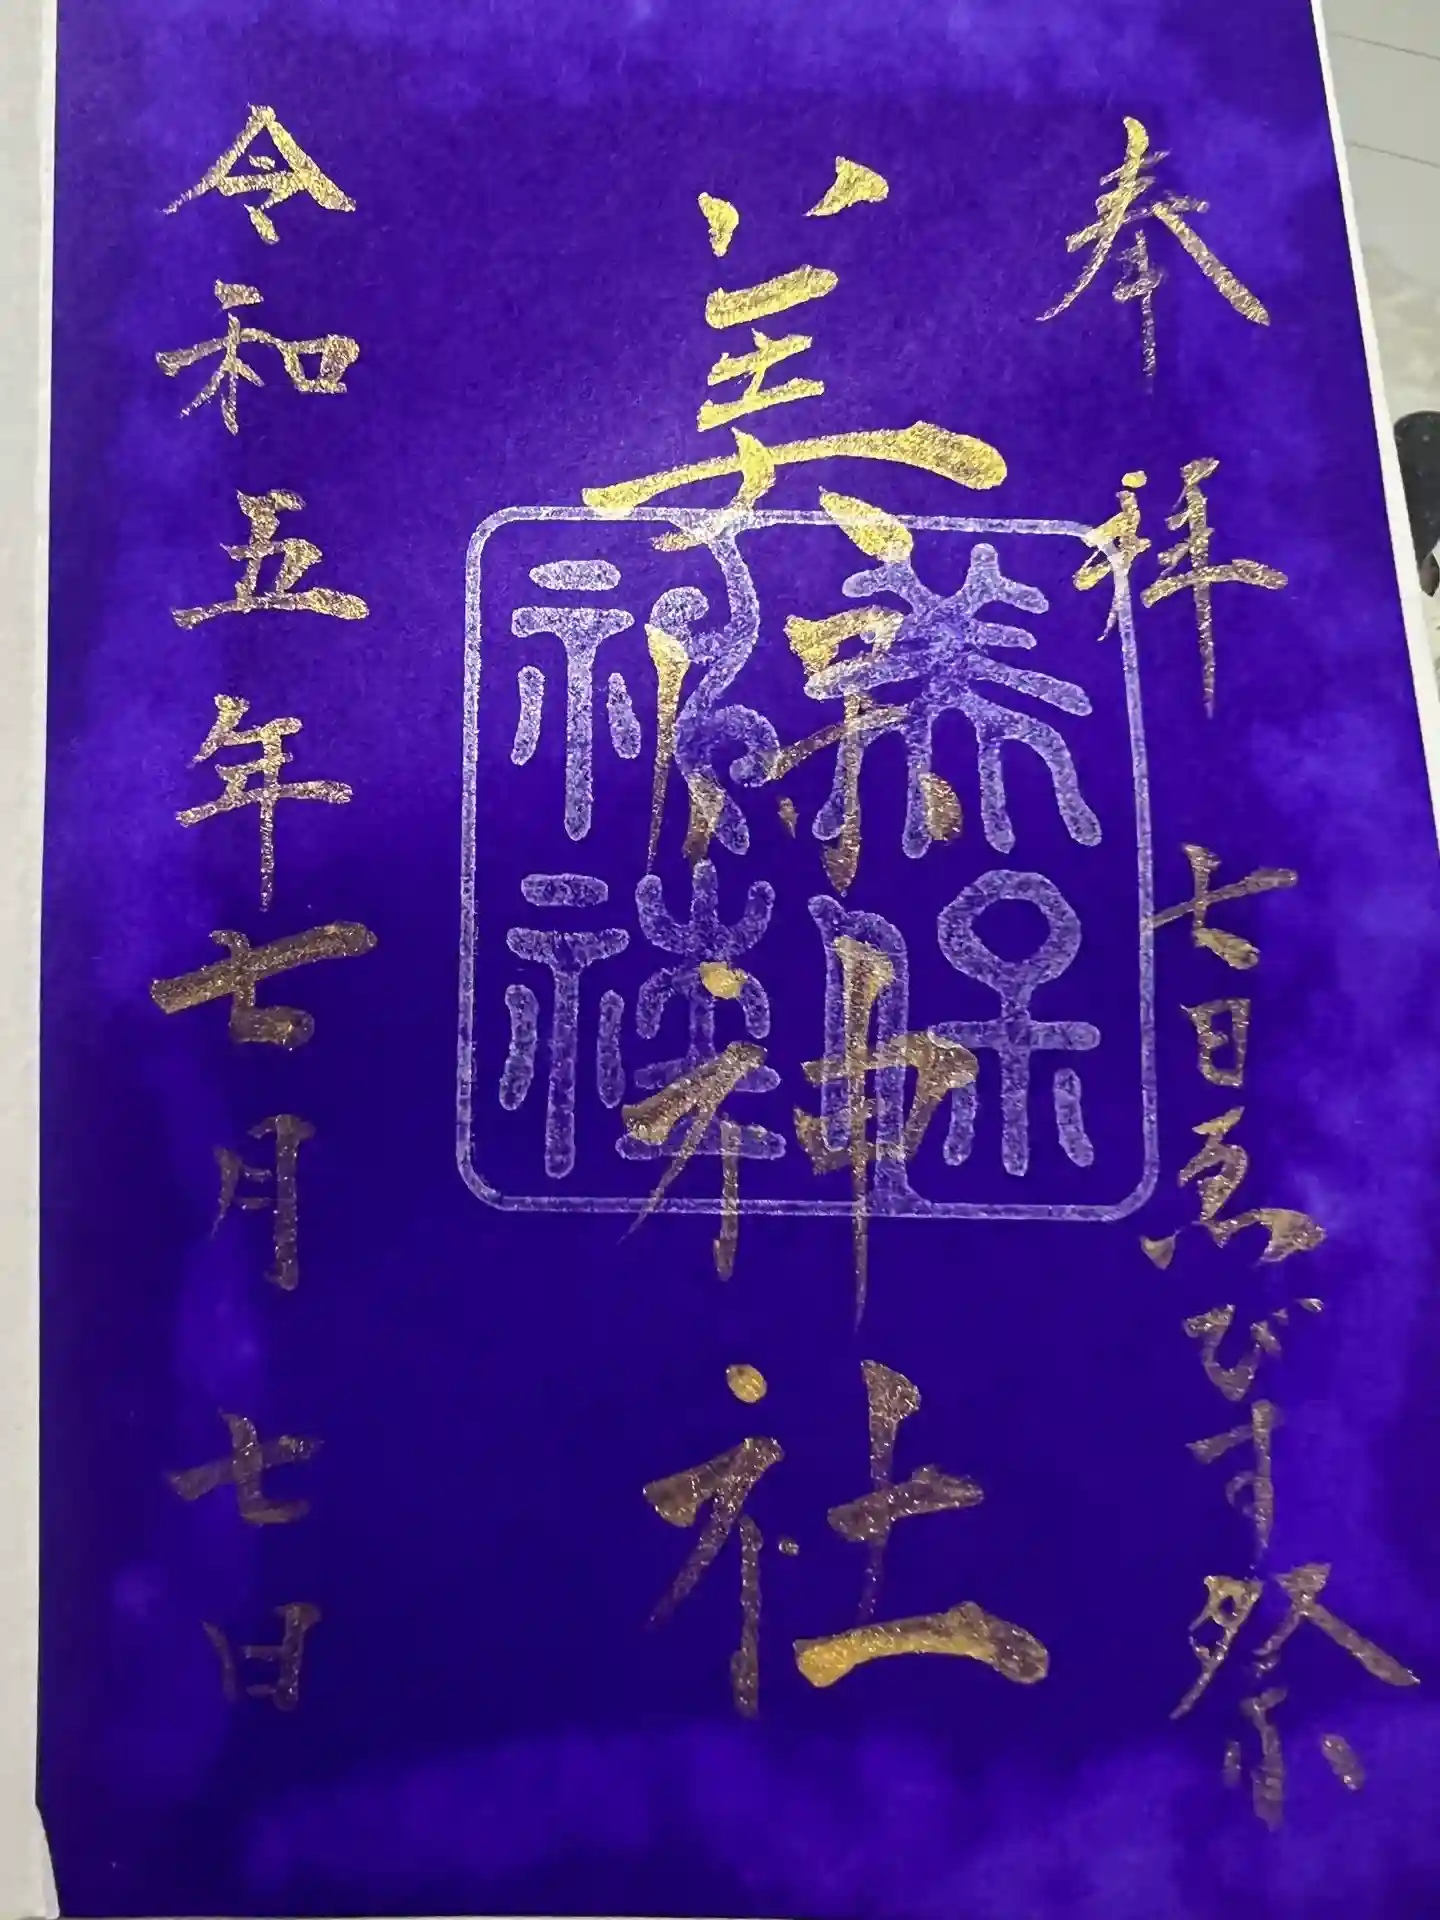 奉拝
七日ゑびす祭
美保神社
美保
神社
令和五年七月七日